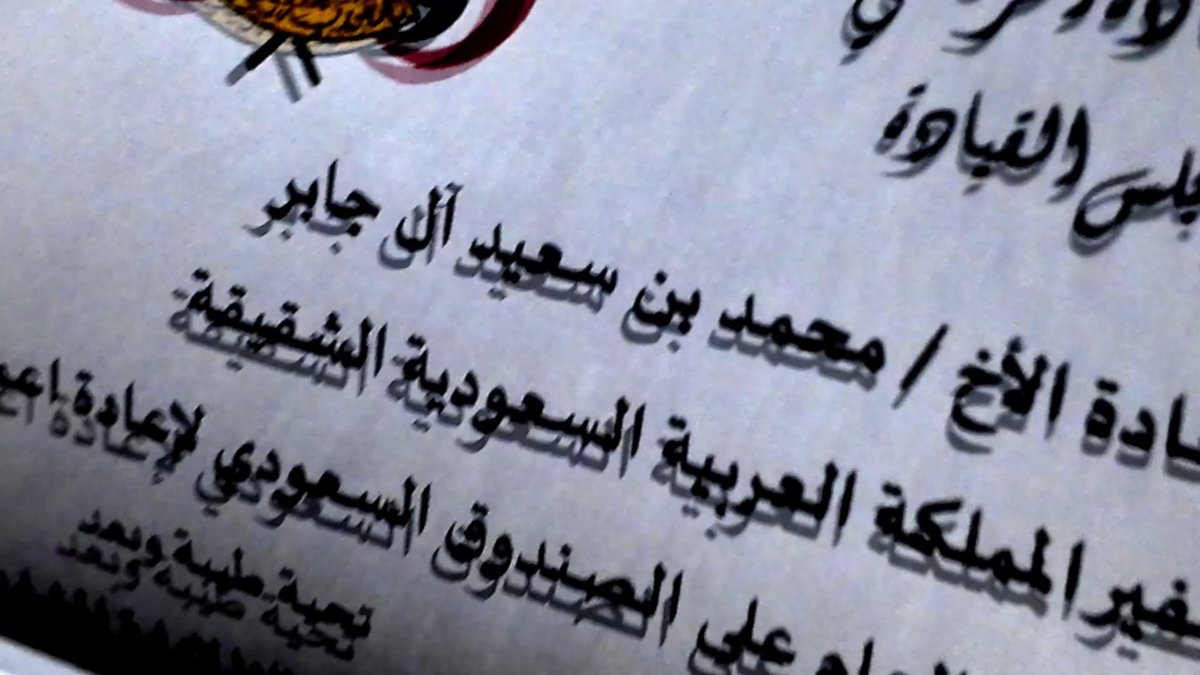 القيادة
الأخ / محمد بن سعيد آل جابر
المملكة العربية السعودية الشقيقة
على الصندوق السعودي لإعادة
تحية طيبة وبعد